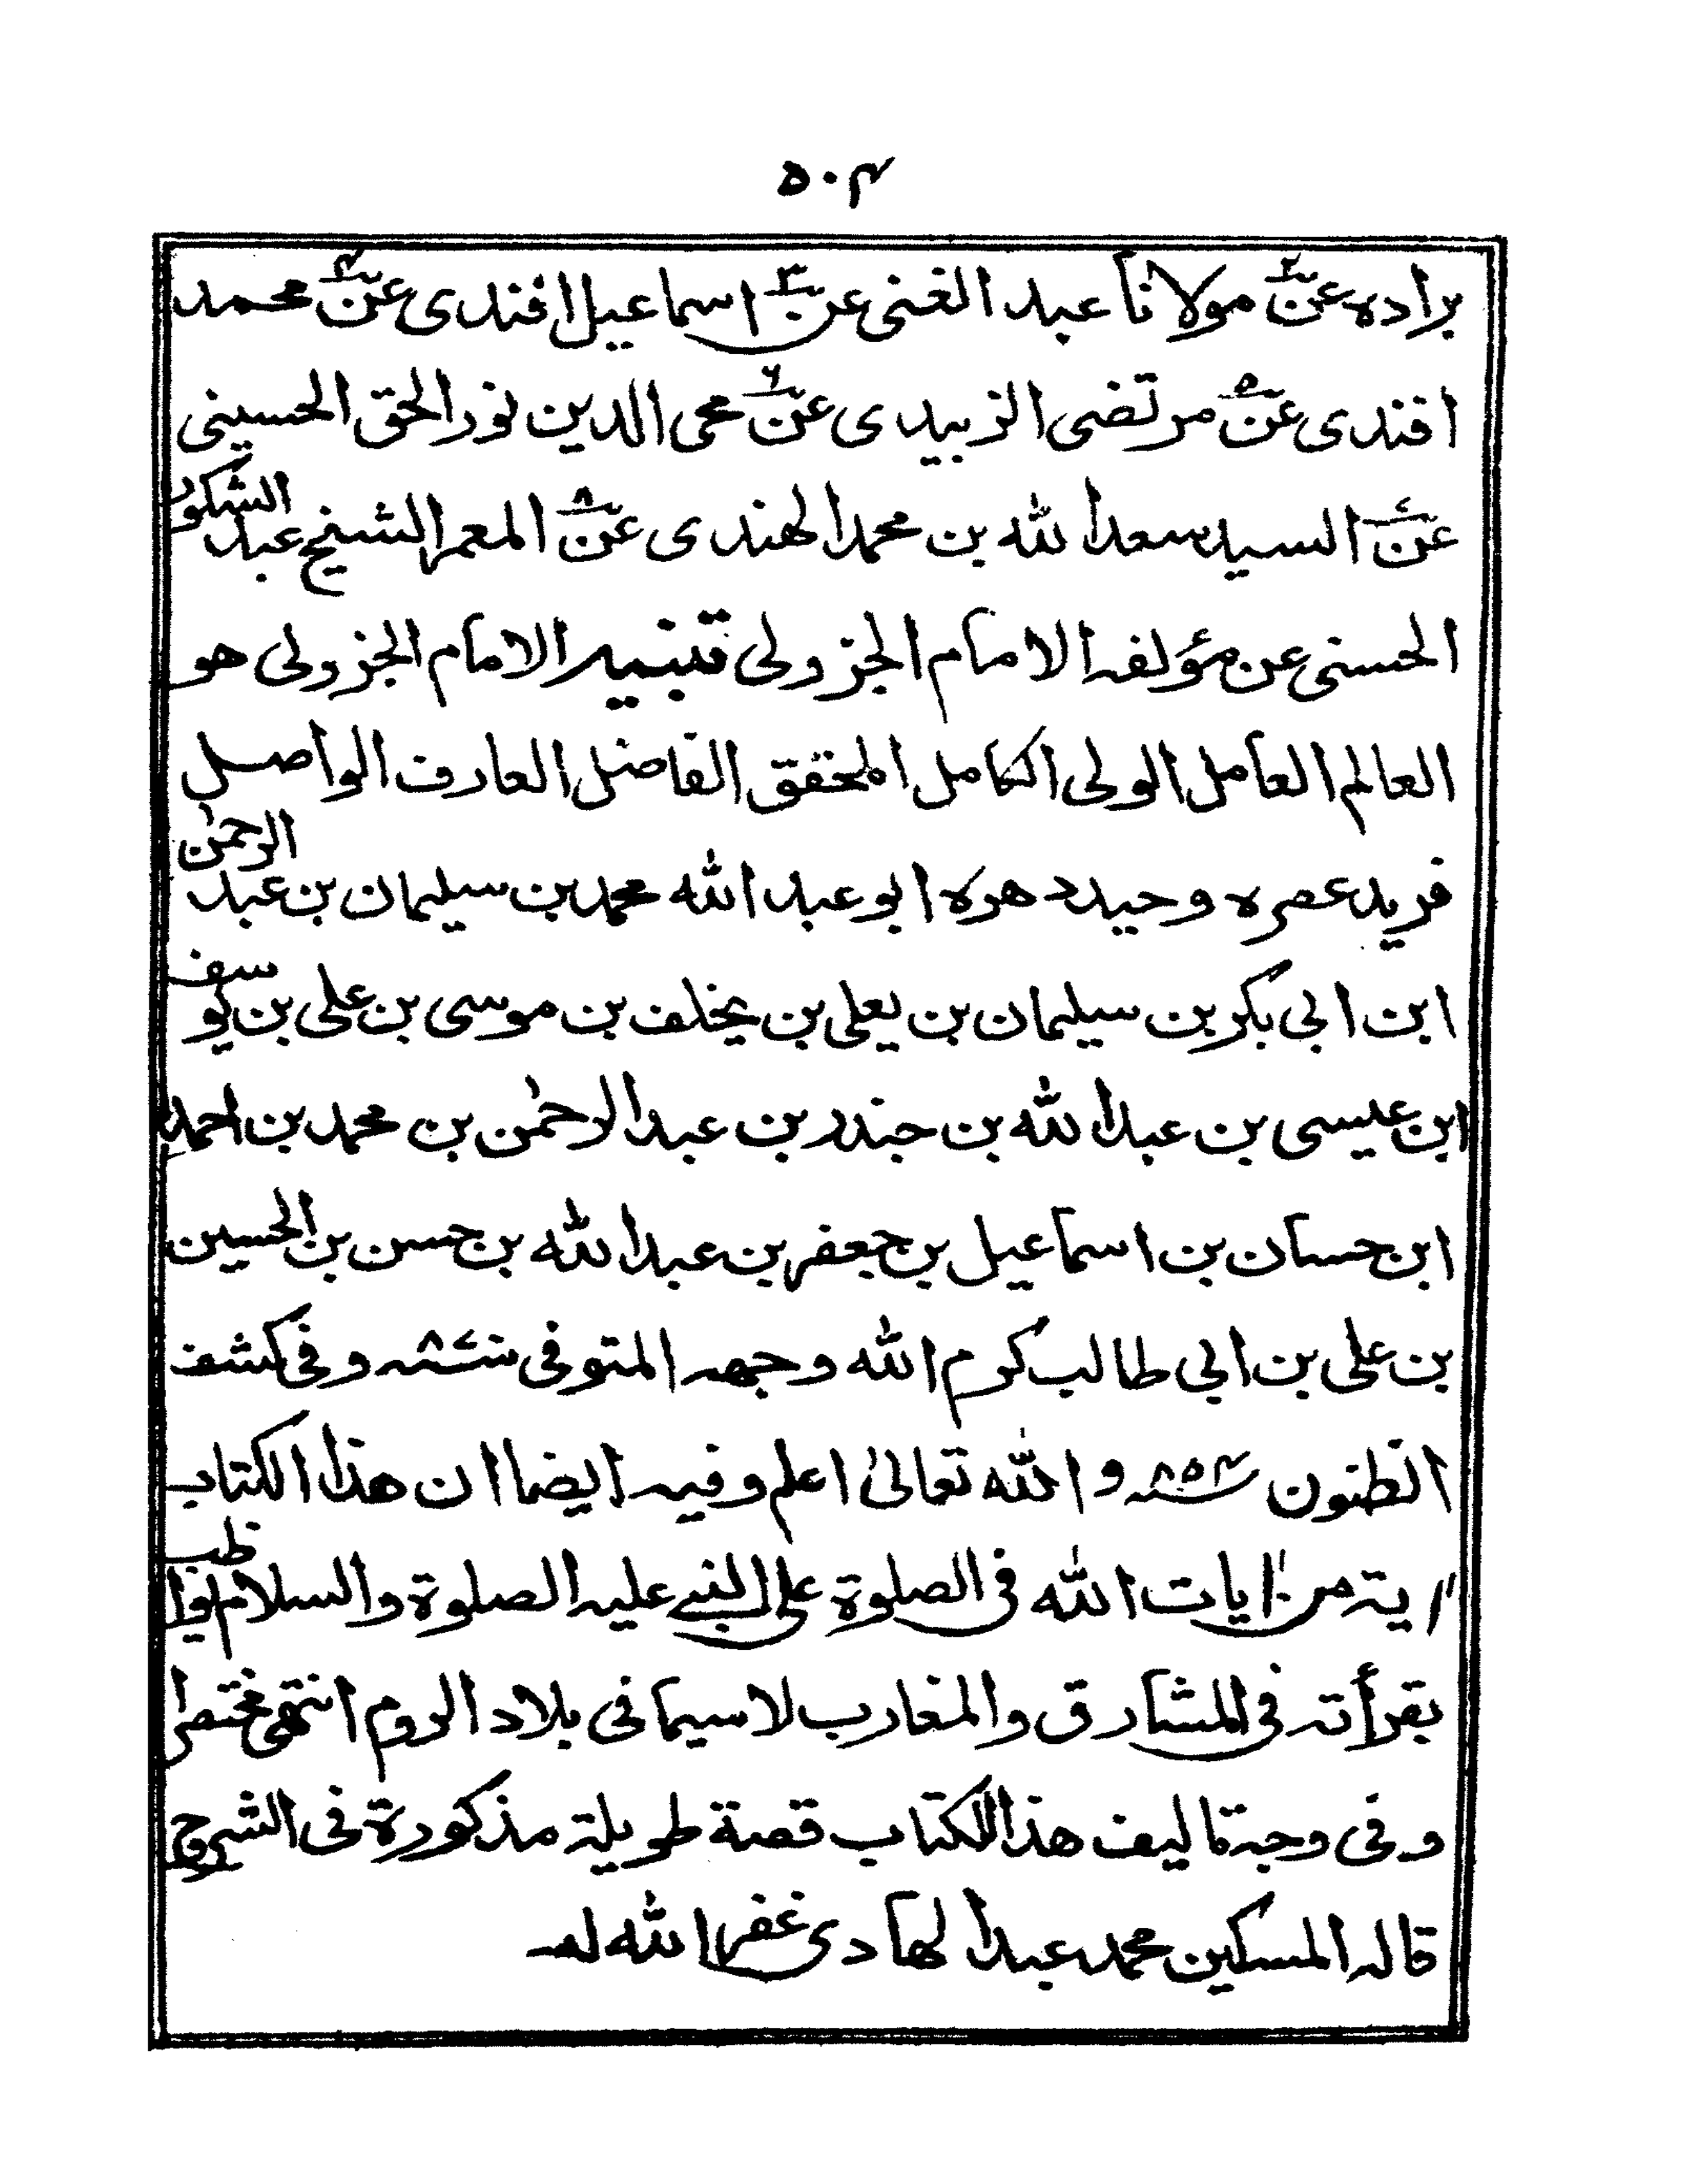 ۵۰۴
براده عن۲ مولانا عبد الغنی عن۳ اسماعیل افندی عن۴ محمد
افندی عن۵ مرتضی الزبیدی عن۶ محی الدین نور الحق الحسینی
عن۷ السید سعد الله بن محمد الهندی عن۸ المعمر الشیخ عبد الشکور
الحسنی عن مؤلفه الامام الجزولی تنبیه الامام الجزولی هو
العالم العامل الولی الکامل المحقق الفاضل العارف الواصل
فرید عصره وحید دهره ابو عبد الله محمد بن سیلمان بن عبد الرحمٰن
ابن ابی بکر بن سیلمان بن یعلی بن یخلف بن موسی بن علی بن یوسف
ابن عیسی بن عبد الله بن جندر بن عبد الرحمٰن بن محمد بن احمد
ابن حسان بن اسماعیل بن جعفر بن عبد الله بن حسن بن الحسین
بن علی بن ابی طالب کرم الله وجهه المتوفی سنة وفی کشف
الظنون ۸۵۴ سنه والله تعالیٰ اعلم وفیه ایضا ان هذا الکتاب
اٰیة من اٰیات الله فی الصلوة علی النبی علیه الصلوة والسلام یواظب
بقرأته فی المشارق والمغارب لا سیما فی بلاد الروم انتهی مختصرا
وفی وجه تالیف هذا الکتاب قصة طویلة مذکورة فی الشروح
قاله المسکین محمد عبد الهادی غفر الله له